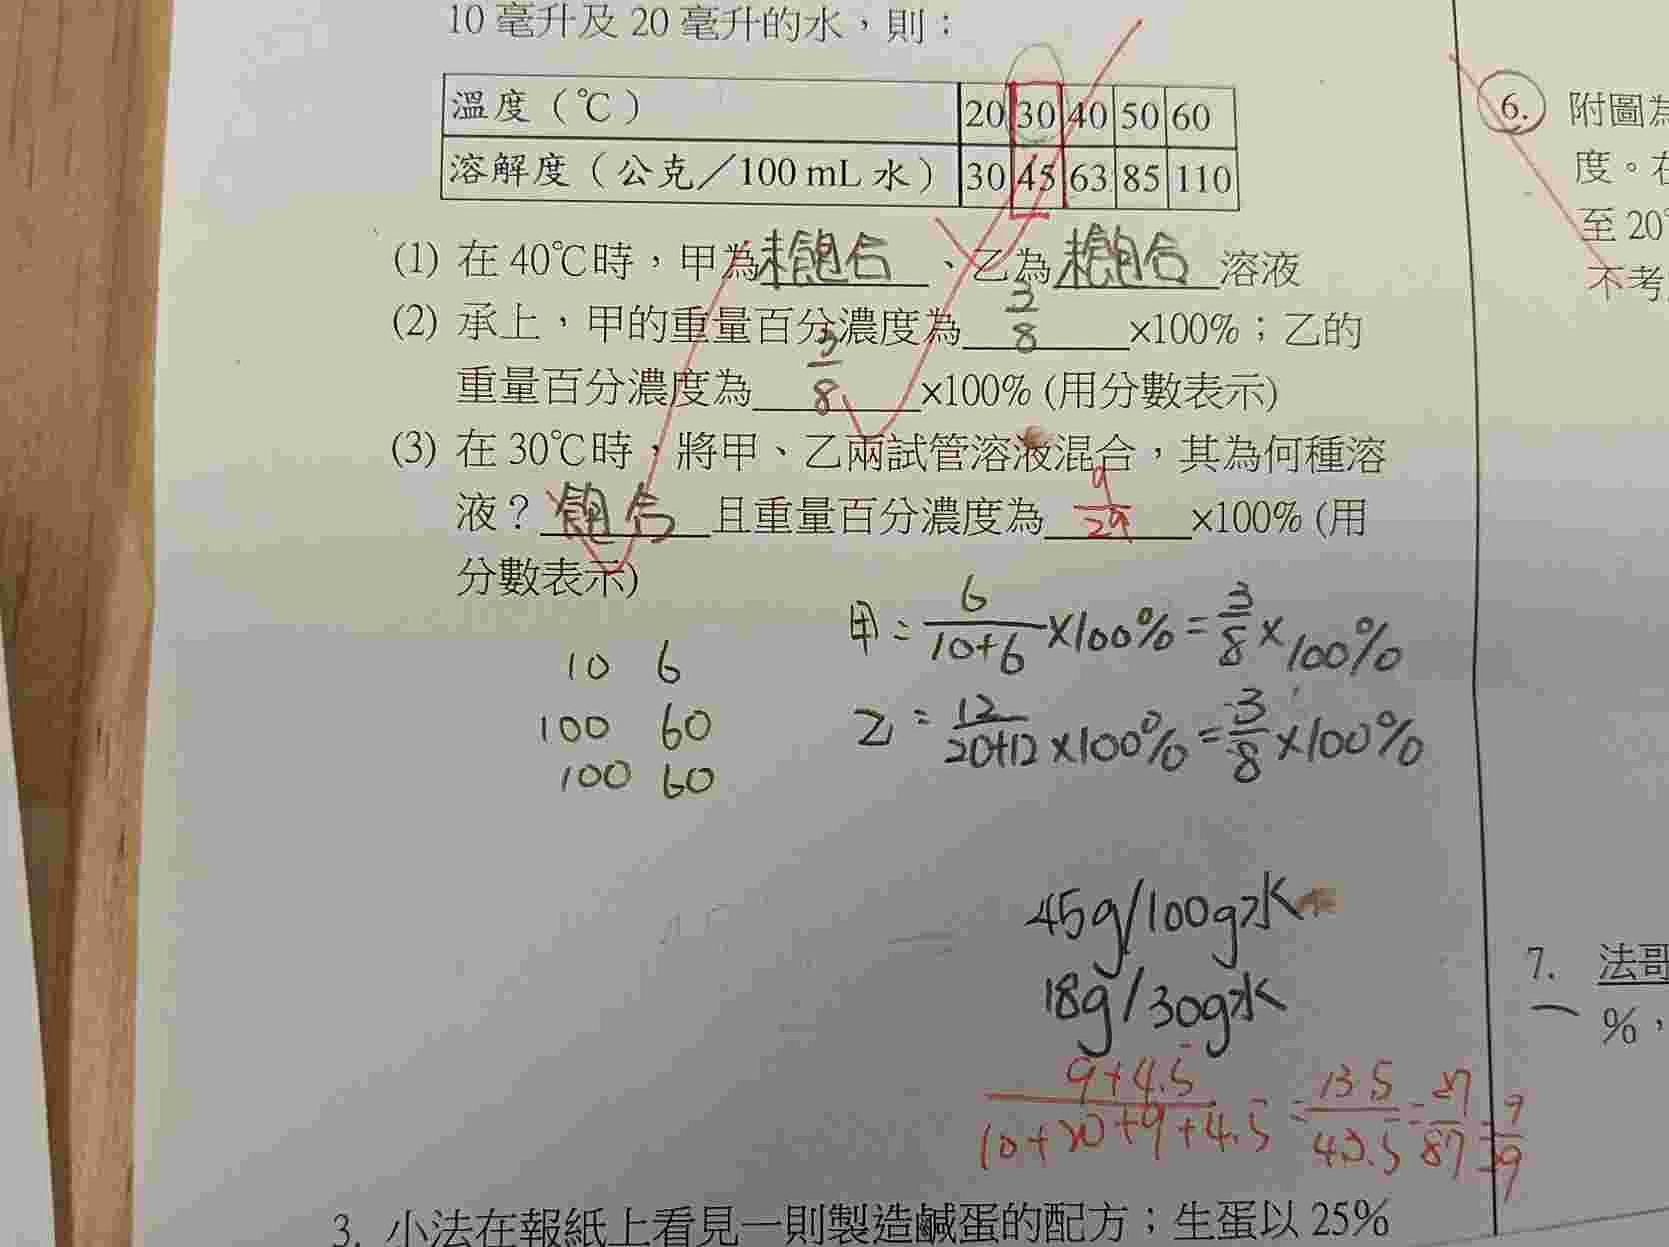 10 毫升及 20 毫升的水，則：
溫度（℃） 20 30 40 50 60
溶解度（公克／100 mL 水） 30 45 63 85 110
(1) 在 40℃時，甲為未飽合、乙為未飽合溶液
(2) 承上，甲的重量百分濃度為 3/8 ×100%；乙的
重量百分濃度為 3/8 ×100% (用分數表示)
(3) 在 30℃時，將甲、乙兩試管溶液混合，其為何種溶
液？飽合 且重量百分濃度為 9/29 ×100% (用
分數表示)
甲 = 6/10+6 ×100% = 3/8 × 100%
10 6
乙 = 12/20+12 ×100% = 3/8 ×100%
100 60
100 60
45g/100g水
18g/30g水
9+4.5/10+20+9+4.5 = 13.5/43.5 = 27/87 = 9
3. 小法在報紙上看見一則製造鹹蛋的配方；生蛋以 25%
6. 附圖為
度。在
至 20°
不考
7. 法哥
%，